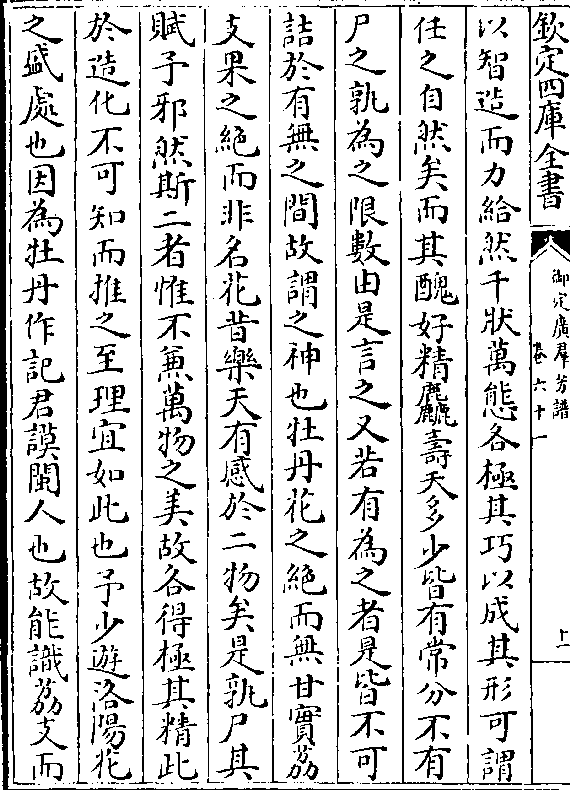 欽定四庫全書
御定廣羣芳譜
卷六十一
十一
以智造而力給然千狀萬態各極其巧以成其形可謂
任之自然矣而其醜好精麤壽夭多少皆有常分不有
尸之孰為之限數由是言之又若有為之者是皆不可
詰於有無之間故謂之神也牡丹花之絶而無甘實荔
支果之絶而非名花昔樂天有感於二物矣是孰尸其
賦予邪然斯二者惟不兼萬物之美故各得極其精此
於造化不可知而推之至理宜如此也予少遊洛陽花
之盛處也因為牡丹作記君謨閩人也故能識荔支而